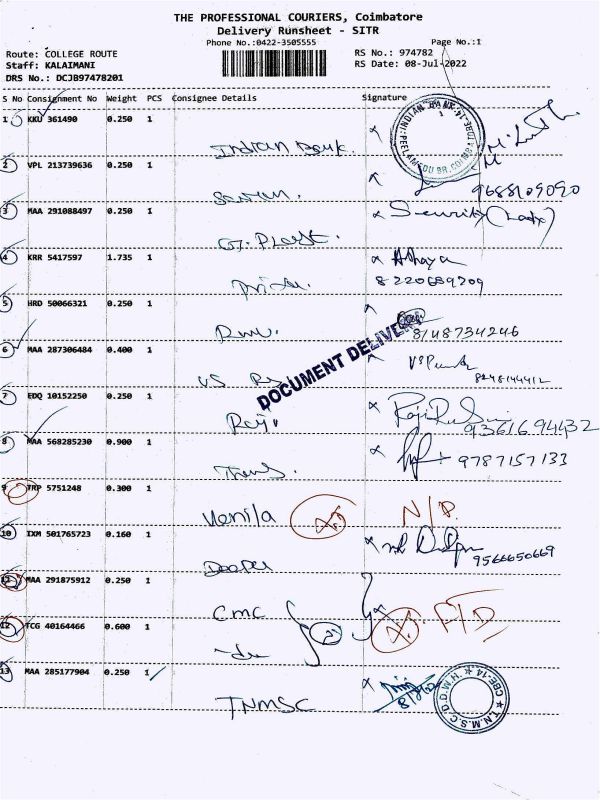 THE PROFESSIONAL COURIERS, Coimbatore
Delivery Runsheet - SITR
Phone No.:0422-3505555
Page No.:1
Route: COLLEGE ROUTE
RS No.: 974782
Staff: KALAIMANI
RS Date: 08-Jul-2022
DRS No.: DCJB97478201
S No Consignment No Weight PCS Consignee Details Signature
1 KKU 361490 0.250 1
Indian Bank.
INDIAN BANK
PEELAMEDU BR. COIMBATORE-14
2 VPL 213739636 0.250 1
9688109090
3 MAA 291088497 0.250 1
Security (Lady)
4 KRR 5417597 1.735 1
Athaya
8220689209
5 HRD 50066321 0.250 1
8148734246
DOCUMENT DELIVERY
6 MAA 287306484 0.400 1
VS
8248144412
7 EDQ 10152250 0.250 1
Raji
9361694432
8 MAA 568285230 0.900 1
9787157133
9 TRP 5751248 0.300 1
Venila N/P.
10 IXM 501765723 0.160 1
Deepu
9566650669
11 MAA 291875912 0.250 1
CMC
12 TCG 40164466 0.600 1
-du P/TD
13 MAA 285177904 0.250 1
TNMSC
8/7/22
T.N.M.S.C
CBE-14